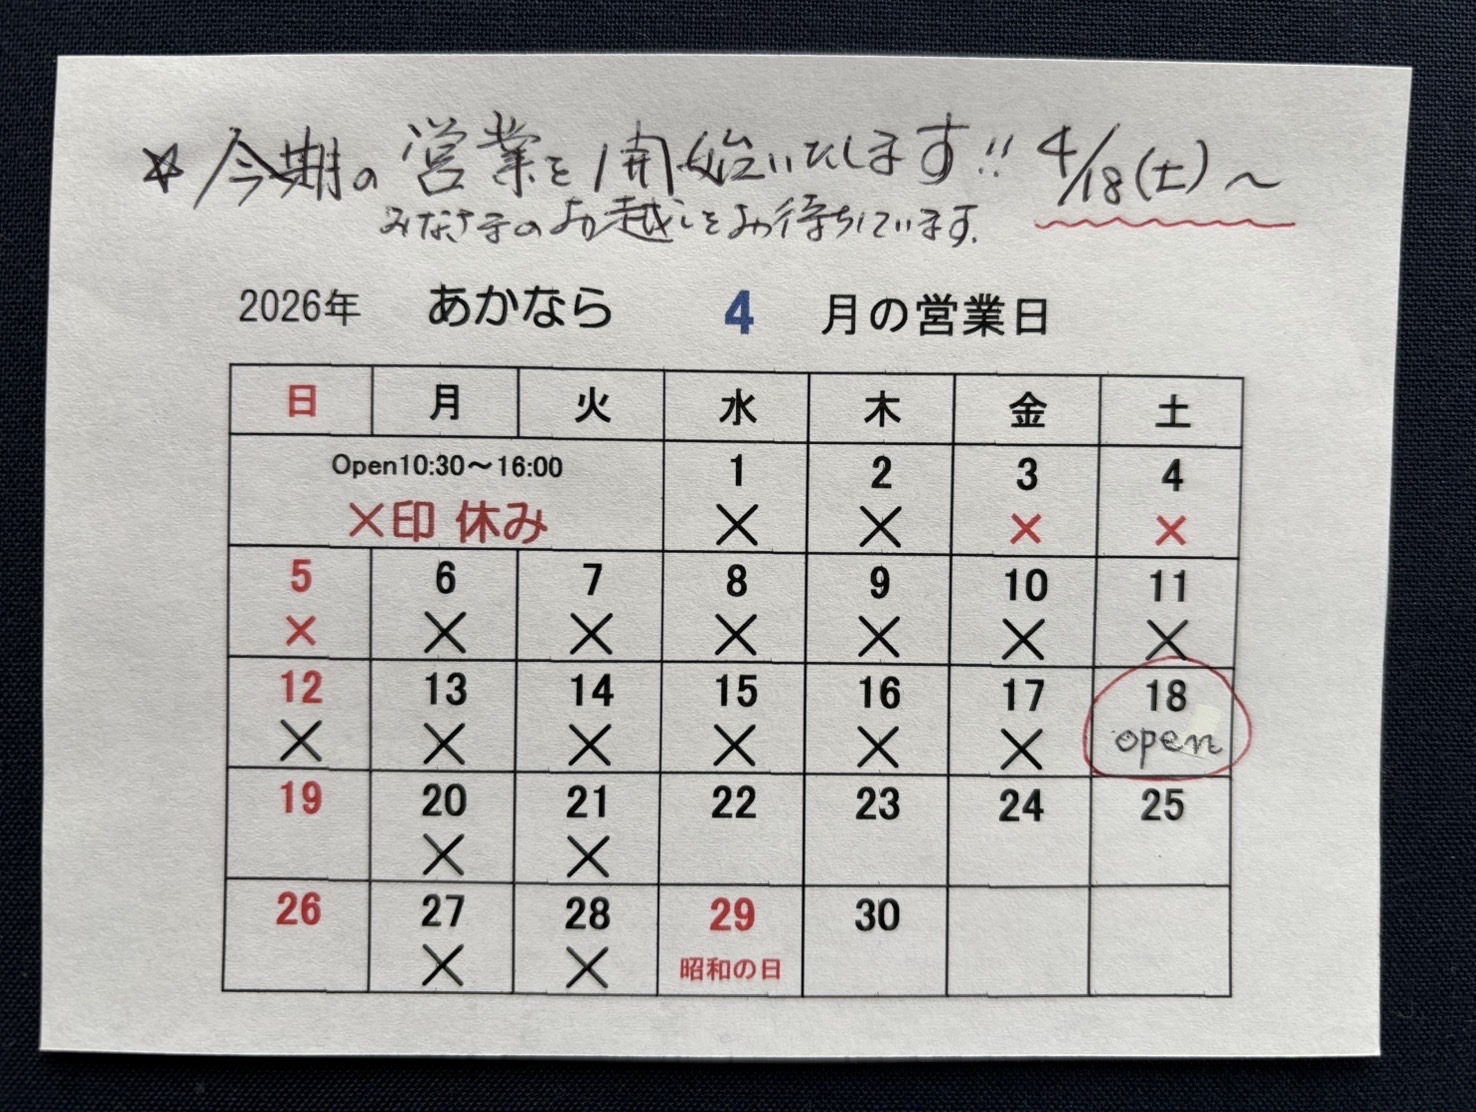 ☆今期の営業を開始いたします!! 4/18(土)～
みなさまのお越しをお待ちしています。
2026年 あかなら 4 月の営業日
日 月 火 水 木 金 土
Open10:30～16:00 1 2 3 4
×印 休み × × × ×
5 6 7 8 9 10 11
× × × × × × ×
12 13 14 15 16 17 18
× × × × × × open
19 20 21 22 23 24 25
× ×
26 27 28 29 30
× × 昭和の日